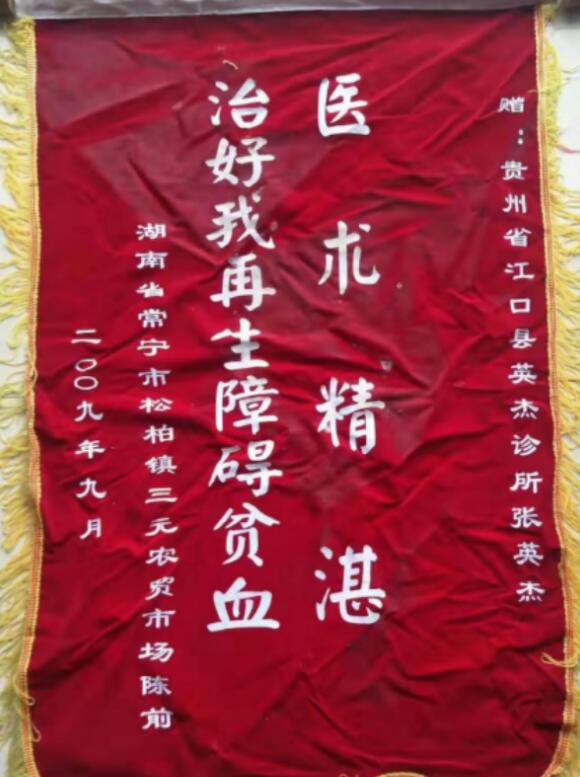 赠：贵州省江口县英杰诊所张英杰
医术精湛
治好我再生障碍贫血
湖南省常宁市松柏镇三元农贸市场陈前
二〇〇九年九月